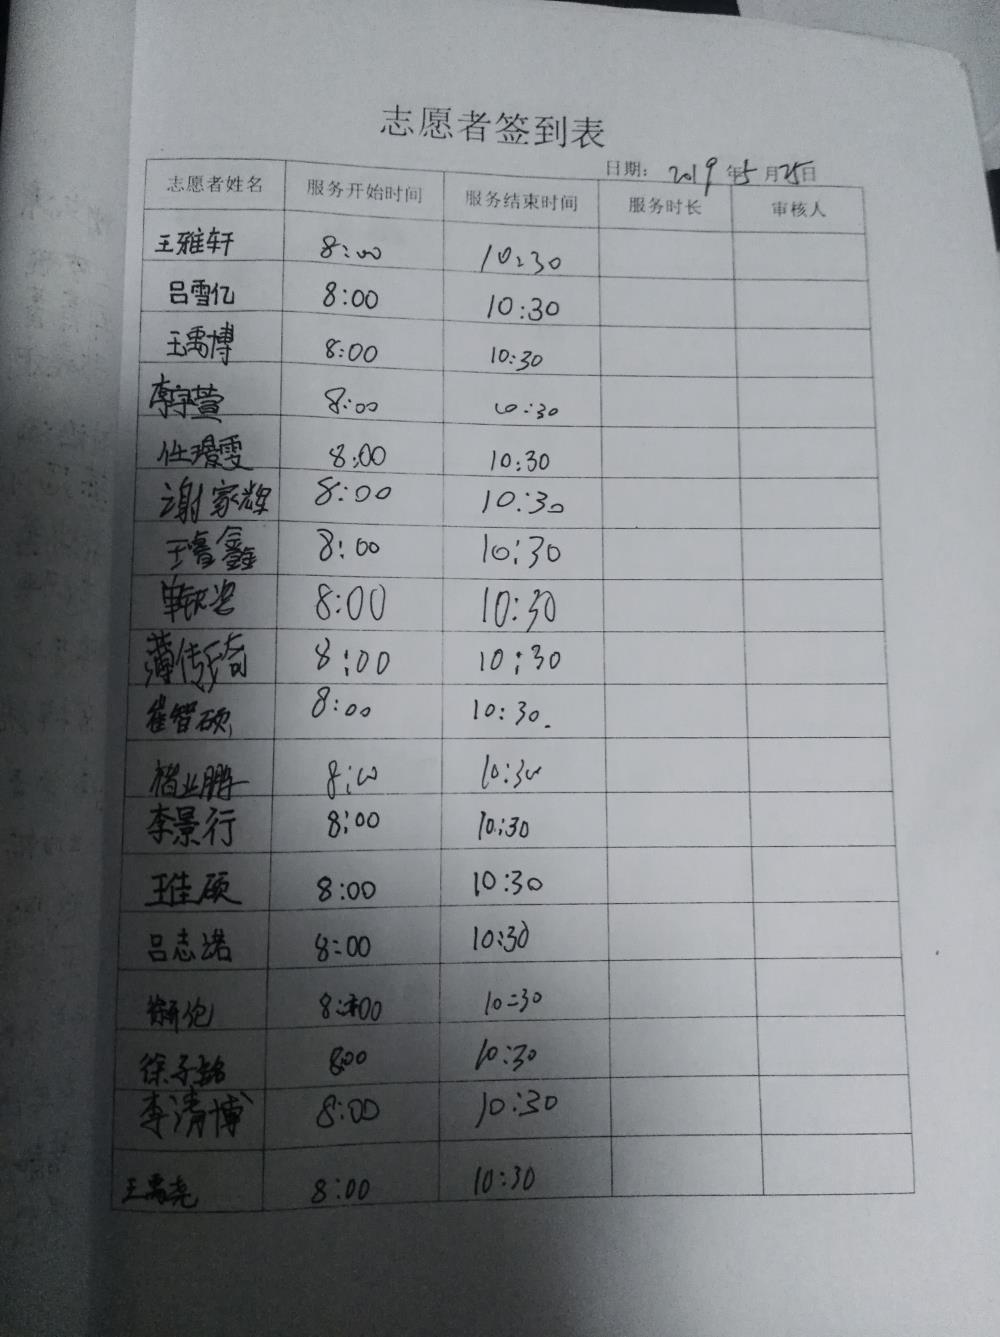 志愿者签到表
日期: 2019 年 5 月 25 日
志愿者姓名 服务开始时间 服务结束时间 服务时长 审核人
王雅轩 8:00 10:30
吕雪亿 8:00 10:30
王禹博 8:00 10:30
李宇萱 8:00 10:30
任璟雯 8:00 10:30
谢家辉 8:00 10:30
王睿鑫 8:00 10:30
8:00 10:30
薄传琦 8:00 10:30
崔智硕 8:00 10:30.
褚业鹏 8:00 10:30
李景行 8:00 10:30
王佳硕 8:00 10:30
吕志诺 8:00 10:30
8:00 10:30
徐子铭 8:00 10:30
李清博 8:00 10:30
王禹尧 8:00 10:30